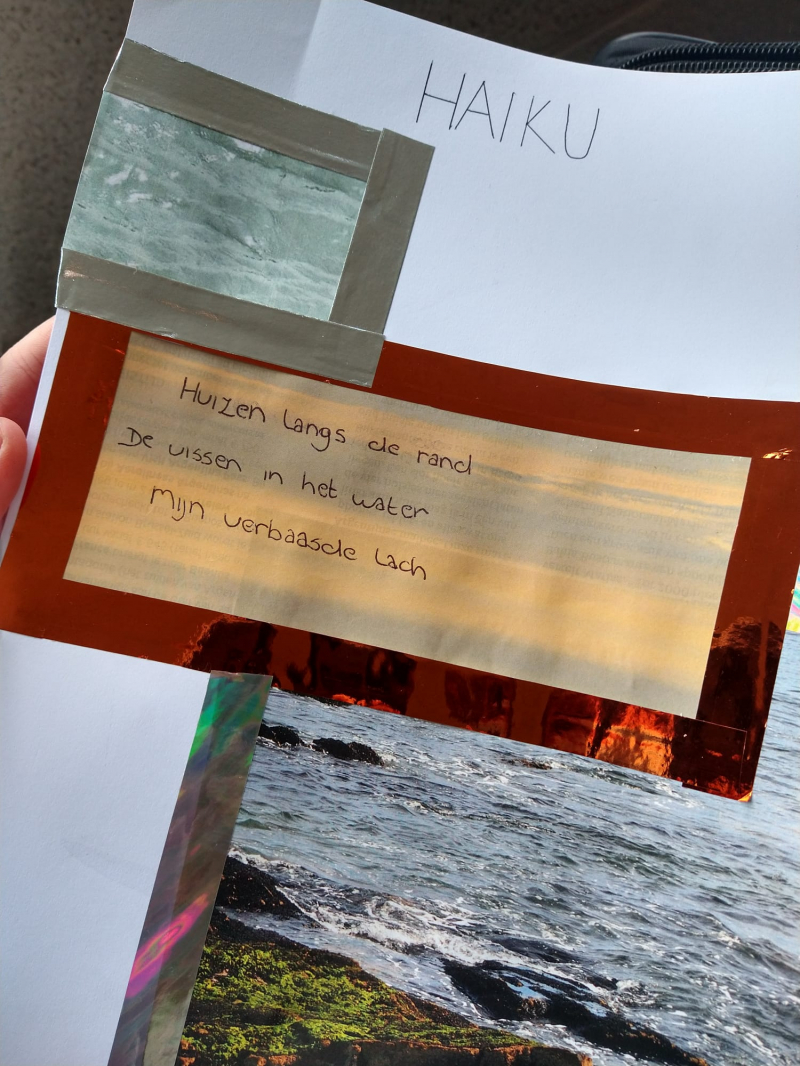 HAIKU
Huizen langs de rand
De vissen in het water
Mijn verbaasde lach